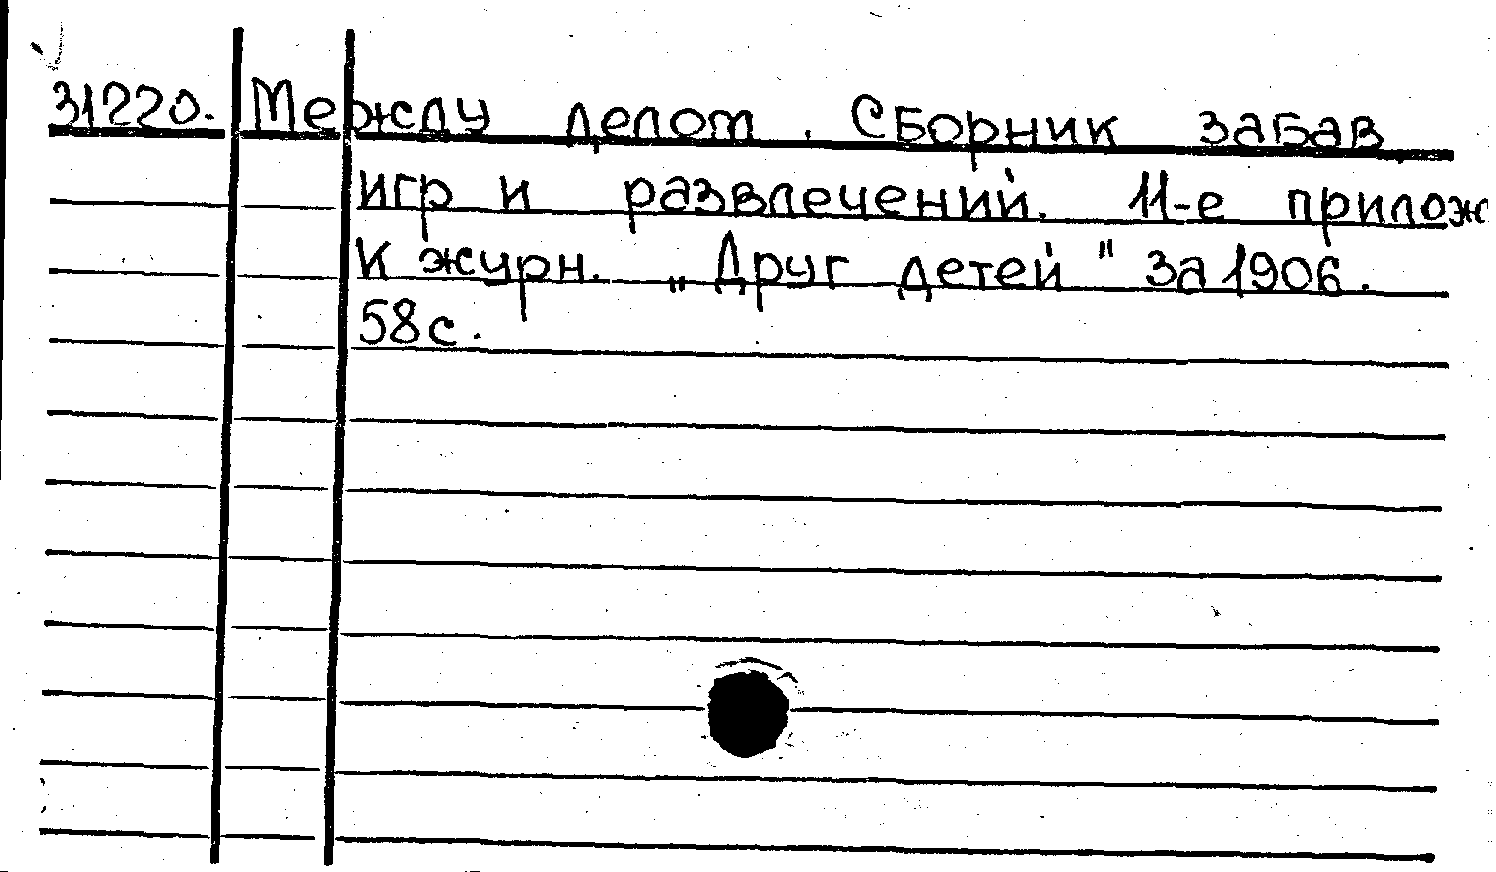 31220. Между делом. Сборник забав
игр и развлечений. 11-е прилож
к журн. „Друг детей" за 1906.
58с.